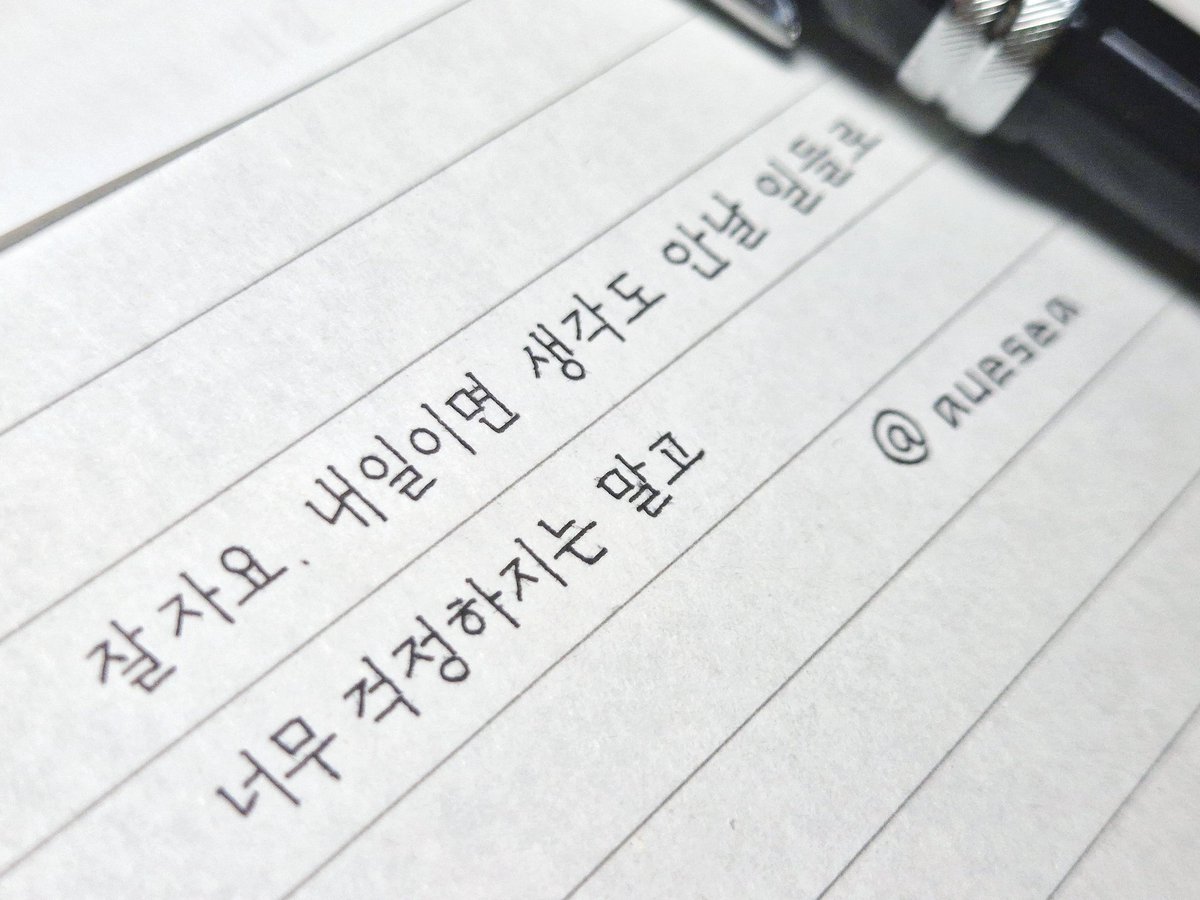 잘 자요. 내일이면 생각도 안날 일들로
너무 걱정하지는 말고
@auesea